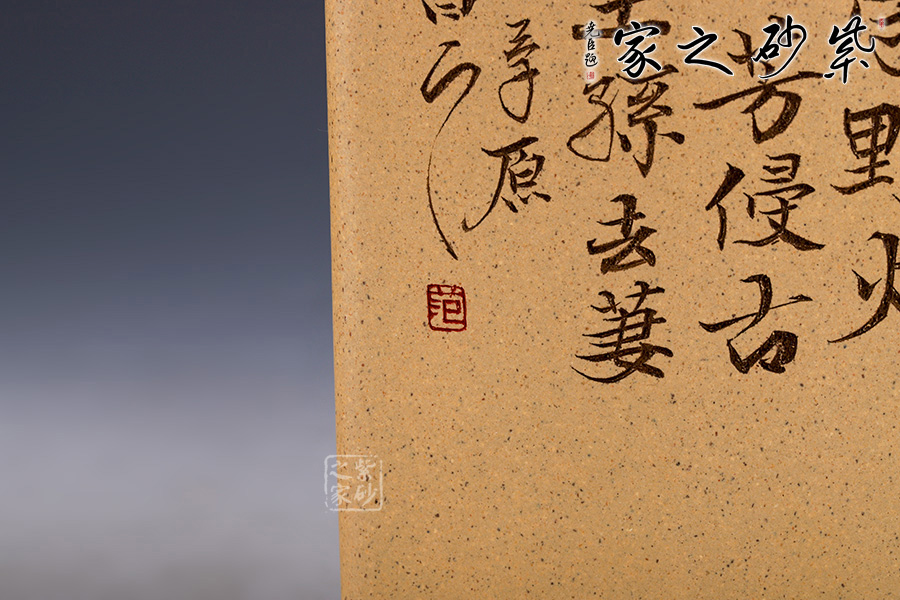 紫砂之家
尧臣题
野火
芳侵古
王孫去萋
原
范
紫砂之家